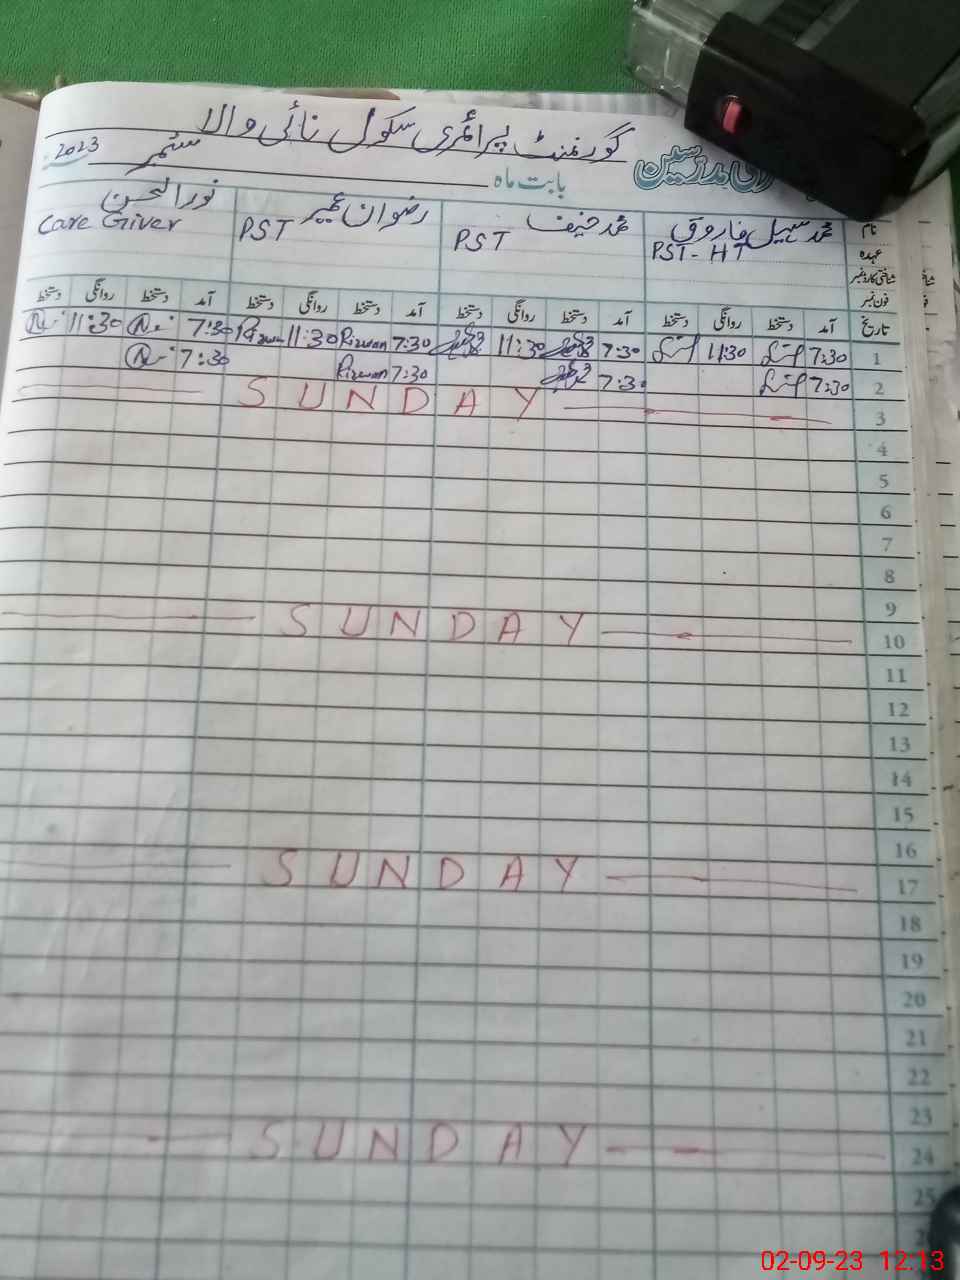 گورنمنٹ پرائمری سکول نائی والا
مدرسین
بابت ماہ ستمبر 2023
نام محمد سہیل فاروق محمد حنیف رضوان عمیر نورالحسن
عہدہ PST-HT PST PST Care Giver
شناختی کارڈ نمبر
فون نمبر
تاریخ آمد دستخط روانگی دستخط آمد دستخط روانگی دستخط آمد دستخط روانگی دستخط آمد دستخط روانگی دستخط
1 7:30 11:30 7:30 11:30 7:30 Rizwan 11:30 Rizwan 7:30 11:30
2 7:30 7:30 7:30 Rizwan 7:30
3 SUNDAY
4
5
6
7
8
9
10 SUNDAY
11
12
13
14
15
16
17 SUNDAY
18
19
20
21
22
23
24 SUNDAY
25
02-09-23 12:13